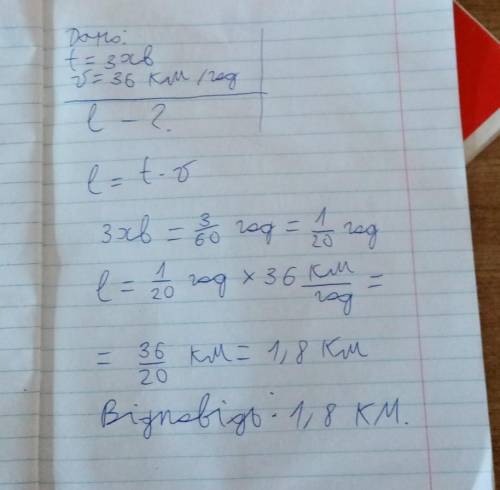 Дано:
t = 3хв
v = 36 км/год
l - ?
l = t · v
3хв = 3/60 год = 1/20 год
l = 1/20 год × 36 км/год =
= 36/20 км = 1,8 км
Відповідь: 1,8 км.